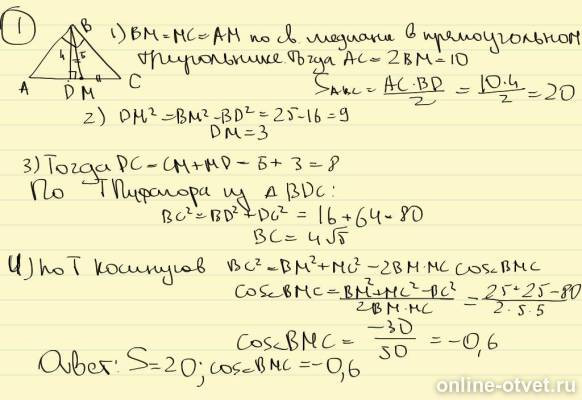 1
B
4
5
A
D M
C
1) BM = MC = AM по св. медианы в прямоугольном
треугольнике Тогда AC = 2BM = 10
S_ABC = AC·BD/2 = 10·4/2 = 20
2) DM² = BM² - BD² = 25 - 16 = 9
DM = 3
3) Тогда DC = CM + MD = 5 + 3 = 8
По Т Пифагора из Δ BDC:
BC² = BD² + DC² = 16 + 64 = 80
BC = 4√5
4) по Т косинусов BC² = BM² + MC² - 2BM·MC cos∠BMC
cos∠BMC = BM² + MC² - BC²/2BM·MC = 25 + 25 - 80/2·5·5
cos∠BMC = -30/50 = -0,6
Ответ: S = 20; cos∠BMC = -0,6
online-otvet.ru